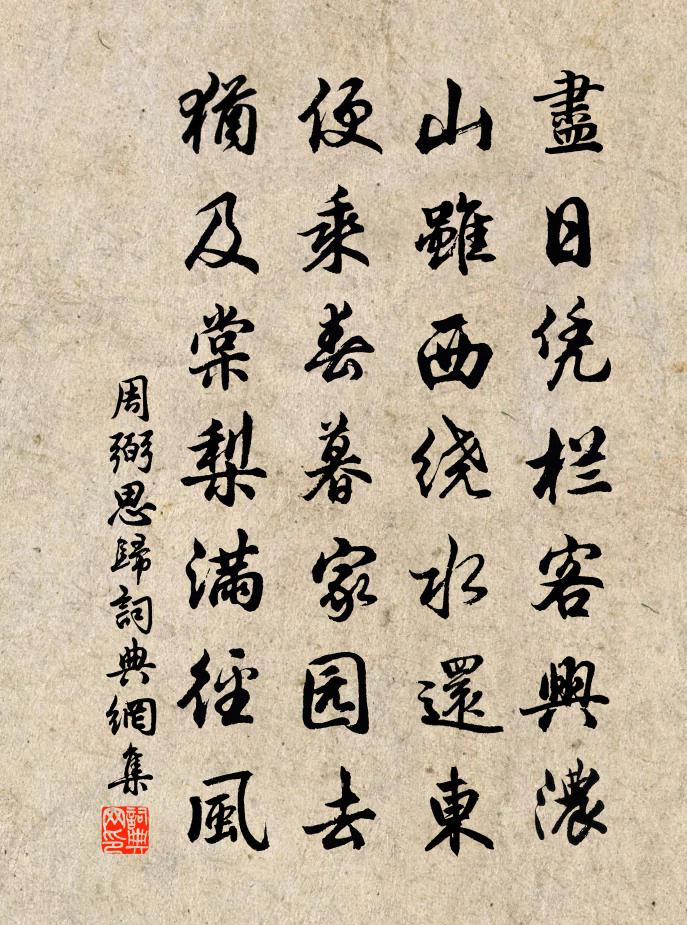 盡日凭栏客興濃
山雖西绕水還東
便乘春暮家园去
猶及棠梨滿徑風
周弼思歸詞典網集
詞典网印